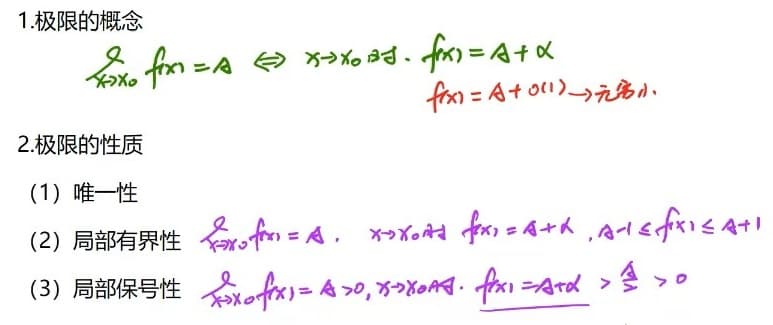 1.极限的概念
lim x→x₀ f(x) = A ⇔ x→x₀时. f(x) = A + α
f(x) = A + o(1) → 无穷小.
2.极限的性质
（1）唯一性
（2）局部有界性 lim x→x₀ f(x) = A. x→x₀时 f(x) = A + α, A-1 ≤ f(x) ≤ A+1
（3）局部保号性 lim x→x₀ f(x) = A > 0, x→x₀时. f(x) = A+α > A/2 > 0